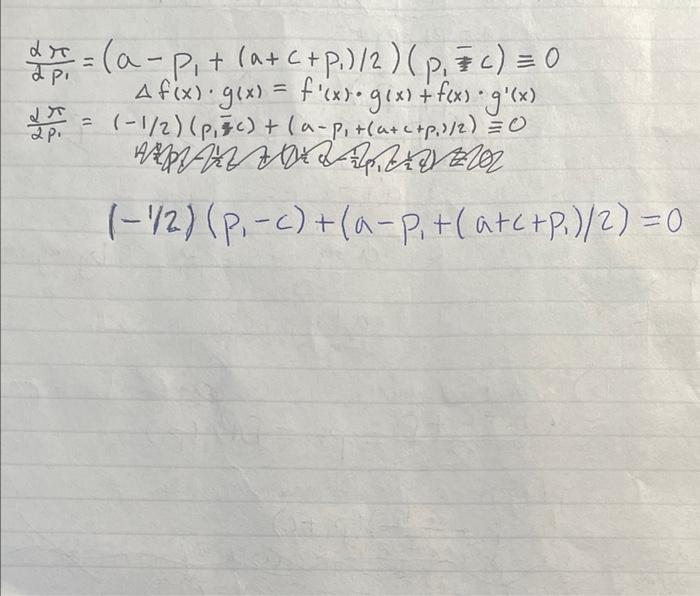 dπ/dp₁ = (a - p₁ + (a+c+p₁)/2)(p₁ - c) ≡ 0
Δ f(x) · g(x) = f'(x) · g(x) + f(x) · g'(x)
dπ/dp₁ = (-1/2)(p₁ - c) + (a - p₁ + (a+c+p₁)/2) ≡ 0
(-1/2)(p₁ - c) + (a - p₁ + (a+c+p₁)/2) = 0